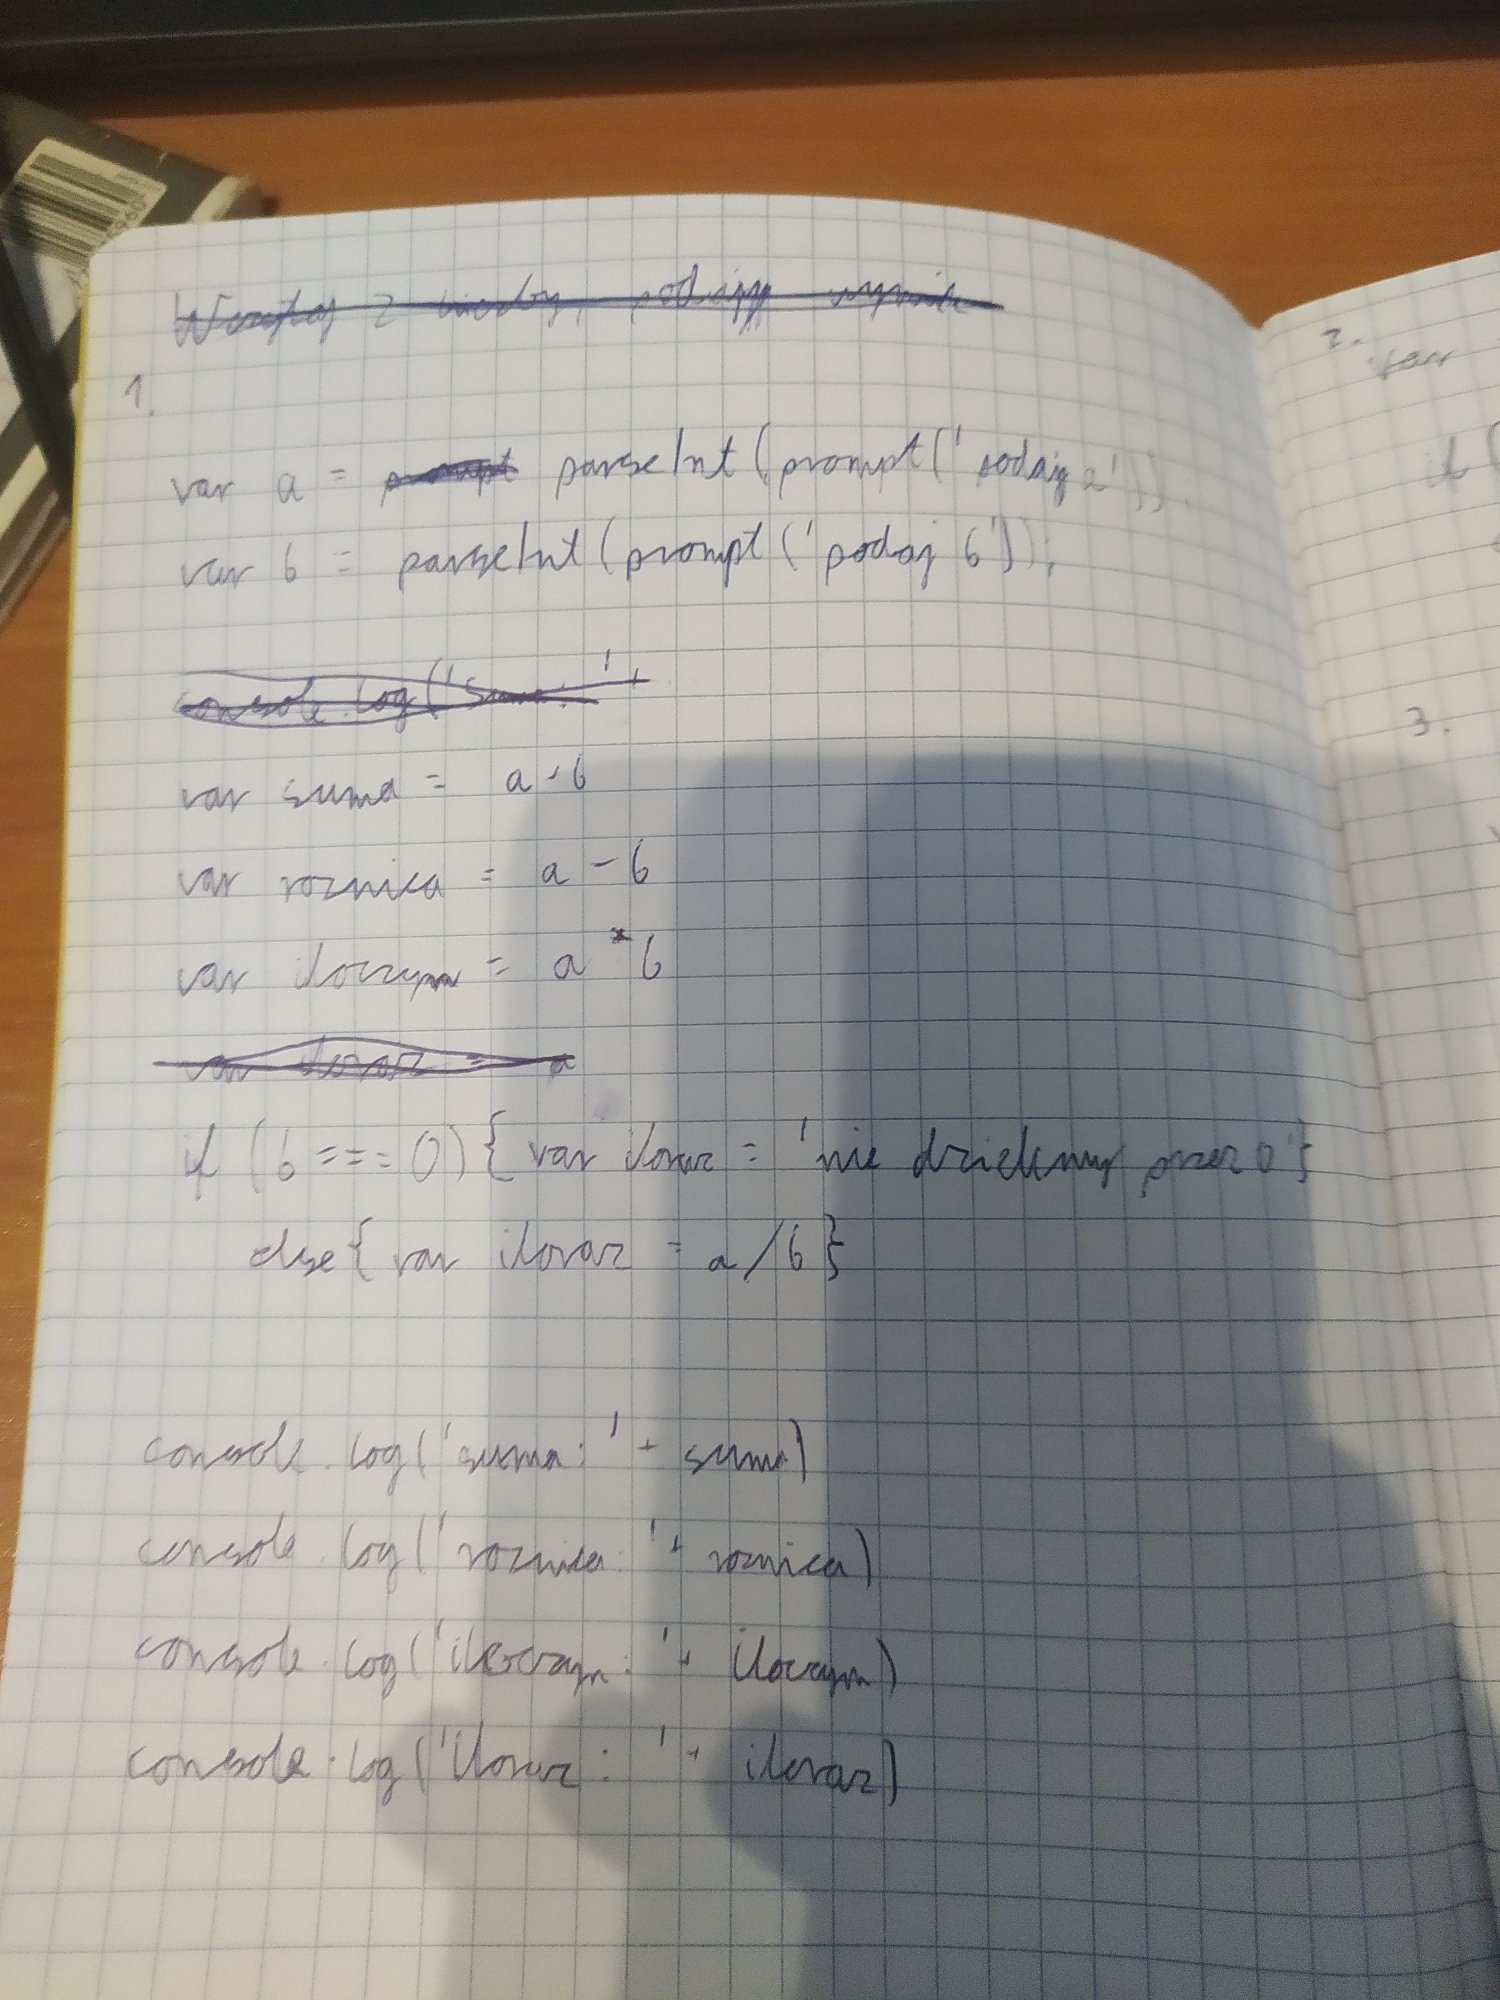 1.
var a = parseInt(prompt('podaj a'))
var b = parseInt(prompt('podaj b'));
console.log('Suma: ' +
var suma = a + b
var roznica = a - b
var iloczyn = a * b
var iloraz = a
if (b === 0) { var iloraz = 'nie dzielimy przez 0'}
else { var iloraz = a/b }
console.log('suma: ' + suma)
console.log('roznica: ' + roznica)
console.log('iloczyn: ' + iloczyn)
console.log('iloraz: ' + iloraz)
2.
var
if (
3.